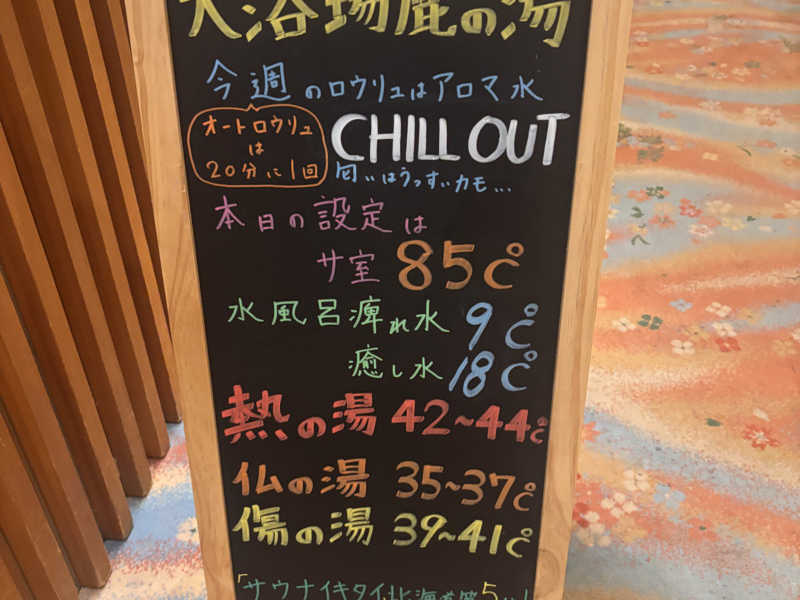 大浴場鹿の湯
今週のロウリュはアロマ水
オートロウリュ
は
20分に1回
CHILL OUT
匂いはうっすいカモ...
本日の設定は
サ室 85℃
水風呂痺れ水 9℃
癒し水 18℃
熱の湯 42~44℃
仏の湯 35~37℃
傷の湯 39~41℃
「サウナイキタイ北海道第5